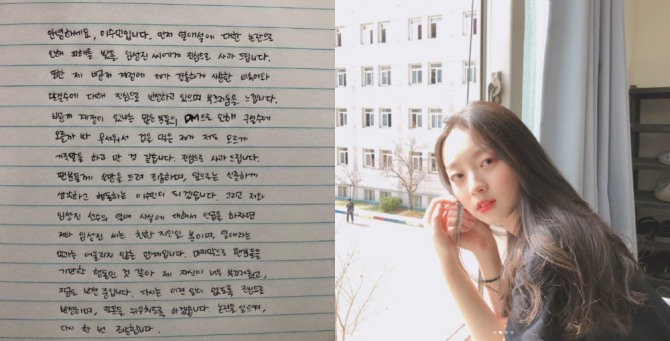 안녕하세요, 이수민입니다. 먼저 열애설에 대한 논란으로
인해 피해를 봤을 임성진 씨에게 진심으로 사과 드립니다.
또한 제 비공개 계정에 제가 경솔하게 사용한 비속어와
대해 진심으로 반성하고 있으며 부끄러움을 느낍니다.
비공개 계정이 있냐는 많은 분들의 DM으로 인해 구설수에
오를까 봐 무서워서 겁을 먹은 제가 저도 모르게
거짓말을 하고 만 것 같습니다. 진심으로 사과 드립니다.
팬분들께 실망을 드려 죄송하며, 앞으로는 신중하게
생각하고 행동하는 이수민이 되겠습니다. 그리고 저와
임성진 선수의 열애 사실에 대해서 언급을 하자면
저와 임성진 씨는 친한 지인일 뿐이며, 열애라는
어울리지 않는 관계입니다. 마지막으로 팬분들을
기만한 행동인 것 같아 제 자신이 너무 부끄러웠고,
지금도 반성 중입니다. 다시는 이런 일이 없도록 진심으로
반성하며, 잘못을 뉘우치도록 하겠습니다. 논란을 일으켜,
다시 한 번 죄송합니다.